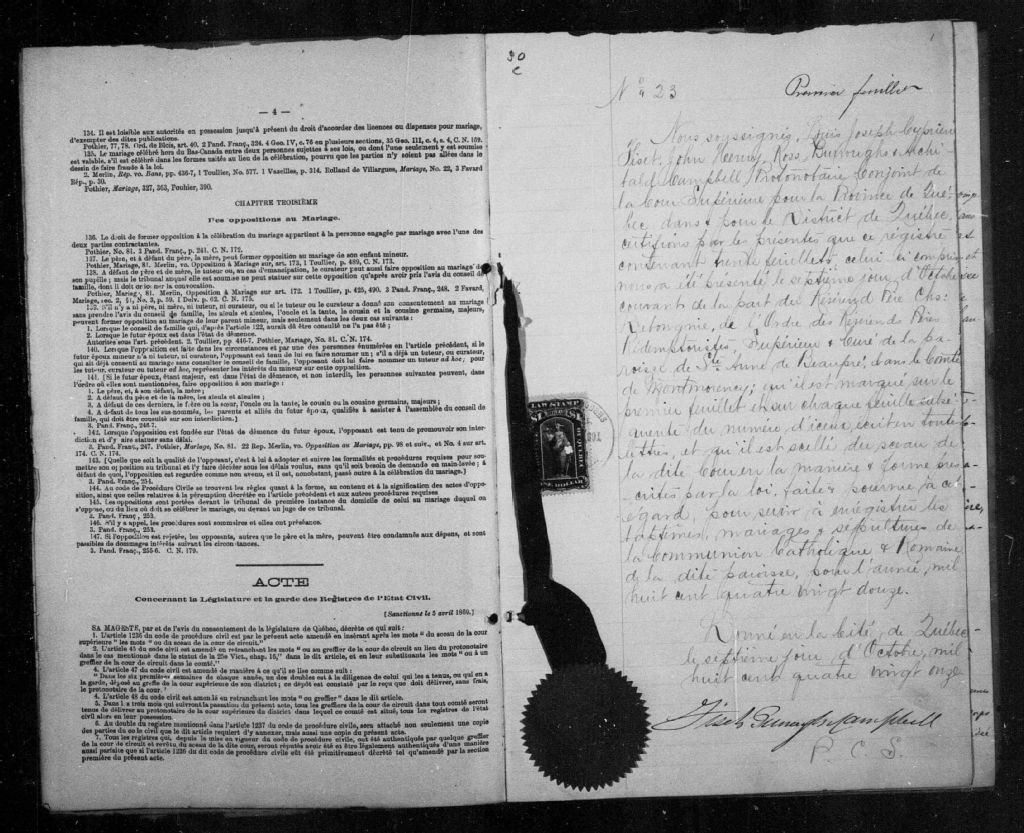 — 4 —
134. Il est loisible aux autorités en possession jusqu'à présent du droit d'accorder des licences ou dispenses pour mariage,
d'exempter des dites publications.
Pothier, 77, 78. Ord. de Blois, art. 40. 2 Pand. Franç., 324. 4 Geo. IV, c. 75 en plusieurs sections, 35 Geo. III, c. 4, s. 4, C. N. 169.
135. Le mariage célébré hors du Bas-Canada entre deux personnes sujettes à ses lois, ou dont l'une seulement y est soumise
est valable, s'il est célébré dans les formes usités au lieu de la célébration, pourvu que les parties n'y soient pas allées dans le
dessin de faire fraude à la loi.
2. Merlin, Rép. vo. Bans, pp. 436-7, 1 Toullier, No. 577. 1 Vazeilles, p. 314. Rolland de Villargues, Mariage, No. 22, 3 Favard
Rép., p. 30.
Pothier, Mariage, 327, 363, Pouhier, 390.
CHAPITRE TROISIÈME
Des oppositions au Mariage.
136. Le droit de former opposition à la célébration du mariage appartient à la personne engagée par mariage avec l'une des
deux parties contractantes.
Pothier, No. 81. 3 Pand. Franç., p. 241. C. N. 172.
137. Le père, et à défaut du père, la mère, peut former opposition au mariage de son enfant mineur.
Pothier, Mariage, 81. Merlin, vo. Opposition à Mariage sur art. 173, 1 Toullier, p. 489, C. N. 173.
138. A défaut de père et de mère, le tuteur ou, en cas d'émancipation, le curateur peut aussi faire opposition au mariage de
son pupille; mais le tribunal auquel elle est soumise ne peut statuer sur cette opposition qu'après avoir pris l'avis du conseil de
famille, dont il doit ordonner la convocation.
Pothier, Mariage, 81. Merlin, Opposition à Mariage sur art. 172. 1 Toullier, p. 425, 490. 3 Pand. Franç., 248. 2 Favard,
Mariage, sec. 2, §1, No. 3, p. 59. 1 Delv. p. 62. C. N. 175.
139. S'il n'y a ni père, ni mère, ni tuteur, ni curateur, ou si le tuteur ou le curateur a donné son consentement au mariage
sans prendre l'avis du conseil de famille, les aïeuls et aïeules, l'oncle et la tante, le cousin et la cousine germains, majeurs,
peuvent former opposition au mariage de leur parent mineur, mais seulement dans les deux cas suivants :
1. Lorsque le conseil de famille qui, d'après l'article 122, aurait dû être consulté ne l'a pas été ;
2. Lorsque le futur époux est dans l'état de démence.
Autorités sous l'art. précédent. 2. Toullier, pp. 446-7. Pothier, Mariage, No. 81. C. N. 174.
140. Lorsque l'opposition est faite dans les circonstances et par une des personnes énumérées en l'article précédent, si le
futur époux mineur n'a ni tuteur, ni curateur, l'opposant est tenu de lui en faire nommer un ; s'il a déjà un tuteur, ou curateur,
qui ait déjà consenti au mariage sans consulter le conseil de famille, l'opposant doit lui faire nommer un tuteur ad hoc ; pour
les tuteur, curateur ou tuteur ad hoc, représenter les intérêts du mineur sur cette opposition.
141. [Si le futur époux, étant majeur, est dans l'état de démence, et non interdit, les personnes suivantes peuvent, dans
l'ordre où elles sont mentionnées, faire opposition à son mariage :
1. Le père, et, à son défaut, la mère ;
2. A défaut du père et de la mère, les aïeuls et aïeules ;
3. A défaut de ces derniers, le frère ou la sœur, l'oncle ou la tante, le cousin ou la cousine germains, majeurs ;
4. A défaut de tous les sus-nommés, les parents et alliés du futur époux, qualifiés à assister à l'assemblée du conseil de
famille, qui doit être consulté sur son interdiction.]
3. Pand. Franç., 246-7.
142. Lorsque l'opposition est fondée sur l'état de démence du futur époux, l'opposant est tenu de promouvoir son inter-
diction et d'y faire statuer sans délai.
3. Pand. Franç., 247. Pothier, Mariage, No. 81. 22 Rep. Merlin, vo. Opposition au Mariage, pp 98 et suiv., et No. 4 sur art.
174. C. N. 174.
143. [Quelle que soit la qualité de l'opposant, c'est à lui à adopter et suivre les formalités et procédures requises pour sou-
mettre son opposition au tribunal et l'y faire décider sous les délais voulus, sans qu'il soit besoin de demande en main-levée ; à
défaut de quoi, l'opposition est regardée comme non avenu, et il est, nonobstant, passé outre à la célébration du mariage.]
3. Pand. Franç., 254.
144. Au code de Procédure Civile se trouvent les règles quant à la forme, au contenu et à la signification des actes d'oppo-
sition, ainsi que celles relatives à la péremption décrétée en l'article précédent et aux autres procédures requises
145. Les oppositions sont portées devant le tribunal de première instance du domicile de celui au mariage duquel on
s'oppose, ou du lieu où doit se célébrer le mariage, ou devant un juge de ce tribunal.
3. Pand. Franç., 253.
146. S'il y a appel, les procédures sont sommaires et elles ont préséance.
3. Pand. Franç., 253.
147. Si l'opposition est rejetée, les opposants, autres que le père et la mère, peuvent être condamnés aux dépens, et sont
passibles de dommages intérêts suivant les circonstances.
3. Pand. Franç., 255-6. C. N. 179.
ACTE
Concernant la Législature et la garde des Registres de l'Etat Civil.
[Sanctionné le 5 avril 1869.]
SA MAGESTE, par et de l'avis du consentement de la législature de Québec, décrète ce qui suit :
1. L'article 1236 du code de procédure civil est par le présent acte amendé en insérant après les mots " du sceau de la cour
supérieure " les mots " ou du sceau de la cour de circuit."
2. L'article 45 du code civil est amendé en retranchant les mots " ou au greffier de la cour de circuit au lieu du protonotaire
dans le cas mentionné dans le statut de la 25e Vict., chap. 16," dans le dit article, et en leur substituants les mots " ou à un
greffier de la cour de circuit dans le comté."
4. L'article 47 du code civil est amendé de manière à ce qu'il se lise comme suit :
" Dans les six premières semaines de chaque année, un des doubles est à la diligence de celui qui les a tenus, ou qui en a
la garde, déposé au greffe de la cour supérieure de son district ; ce dépôt est constaté par le reçu que doit délivrer, sans frais,
le protonotaire de la cour. "
4. L'article 48 du code civil est amendé en retranchant les mots " ou greffier " dans le dit article.
5. Dans les trois mois qui suivront la passation du présent acte, tous les greffiers de la cour de circuit dans tout comté seront
tenus de délivrer au protonotaire de la cour supérieure du district dans lequel ce comté est situé, tous les registres de l'état
civil alors en leur possession.
6. Au double du registre mentionné dans l'article 1237 du code de procédure civile, sera attaché non seulement une copie
des parties du code civile que le dit article requiert d'y annexer, mais aussi une copie du présent acte.
7. Tous les registres qui, depuis la mise en vigueur du code de procédure civile, ont été authentiqués par quelque greffier
de la cour de circuit et revêtu du sceau de la dite cour, seront réputés avoir été et être légalement authentiqués d'une manière
aussi parfaite que si l'article 1236 du dit code de procédure civile eût été primitivement décrété tel qu'amendé par la section
première du présent acte.
30
c
No 23
Premier feuillet
Nous soussignés, Louis Joseph Cyprien
Fiset, John Henry Ross Burroughs & Archi-
bald Campbell, Protonotaire Conjoint de
la Cour Supérieure pour la Province de Qué-
bec, dans & pour le District de Québec,
certifions par les présentes que ce régistre
contenant trente feuillets, celui-ci compris,
nous a été présenté le septième jour d'Octobre
courant de la part du Révérend Père Chs:
Debongnie, de l'Ordre des Révérends Pères
Rédemptoristes, Supérieur & Curé de la pa-
roisse de Ste. Anne de Beaupré, dans le Comté
de Montmorency; qu'il est marqué sur le
premier feuillet et sur chaque feuillet subsé-
quente du numéro d'iceux, écrit en toutes
lettres, et qu'il est scellé du sceau de
la dite Cour en la manière & forme pres-
crites par la loi, faite & pourvue à cet
égard, pour servir à enregistrer les
baptêmes, mariages & sépultures de
la Communion Catholique & Romaine
de la dite paroisse, pour l'année mil
huit cent quatre vingt douze.
Donné en la Cité de Québec
le septième jour d'Octobre, mil
huit cent quatre vingt onze
Fiset, Burroughs & Campbell
P. C. S.
LAW STAMP
QUEBEC
ONE DOLLAR